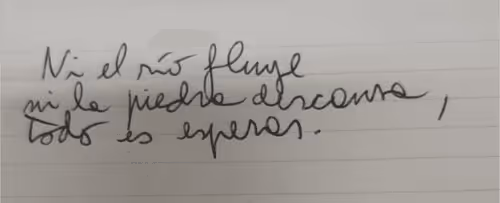 Ni el río fluye
ni la piedra descansa,
todo es esperar.